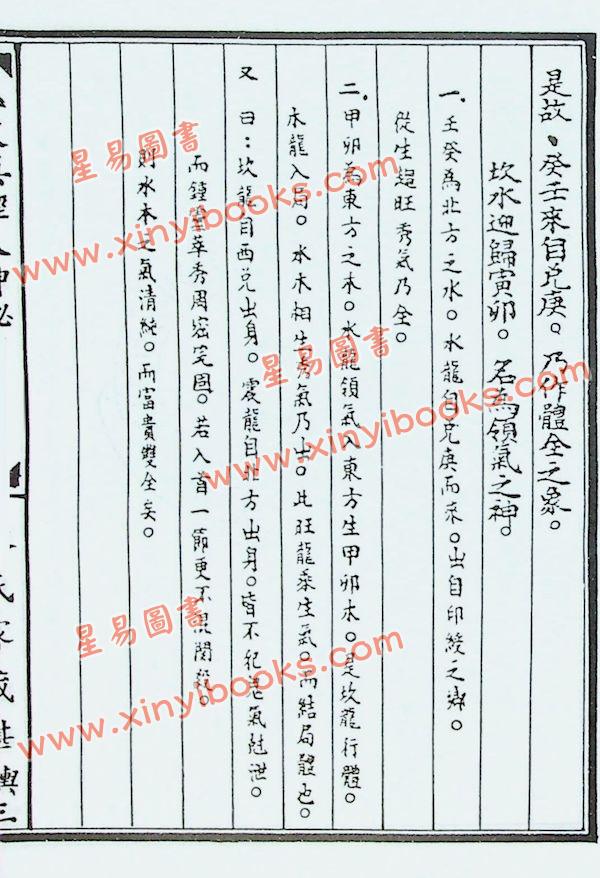 是故、癸壬來自兌庚。乃作體全之象。
坎水迎歸寅卯。名為領氣之神。
一.壬癸為北方之水。水龍自兌庚而來。出自印綬之鄉。
從生趨旺秀氣乃全。
二.甲卯為東方之木。水龍領氣入東方生甲卯木。是坎龍行體。
木龍入局。水木相生秀氣乃出。此旺龍乘生氣。而結局體也。
又曰：坎龍自西兌出身。震龍自北方出身。皆不犯煞氣尅泄。
而鍾靈萃秀周密完固。若入首一節更不混閃殺。
則水木之氣清純。而富貴雙全矣。
神秘
氏家藏堪輿三
星易圖書
www.xinyibooks.com
星易圖書
www.xinyibooks.com
星易圖書
www.xinyibooks.com